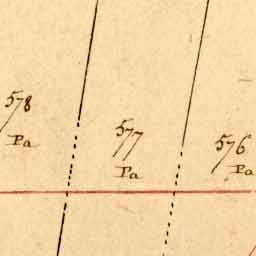 578
Pa
577
Pa
576
Pa